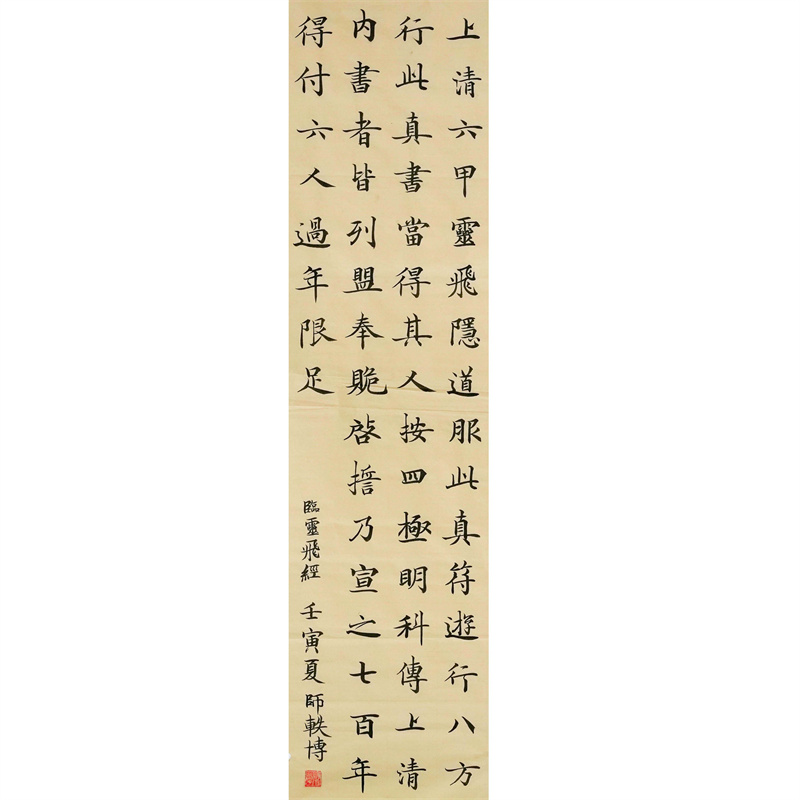 上清六甲靈飛隱道服此真符遊行八方
行此真書當得其人按四極明科傳上清
內書者皆列盟奉貹啓擔乃宣之七百年
得付六人過年限足
臨靈飛經 壬寅夏 師軼博